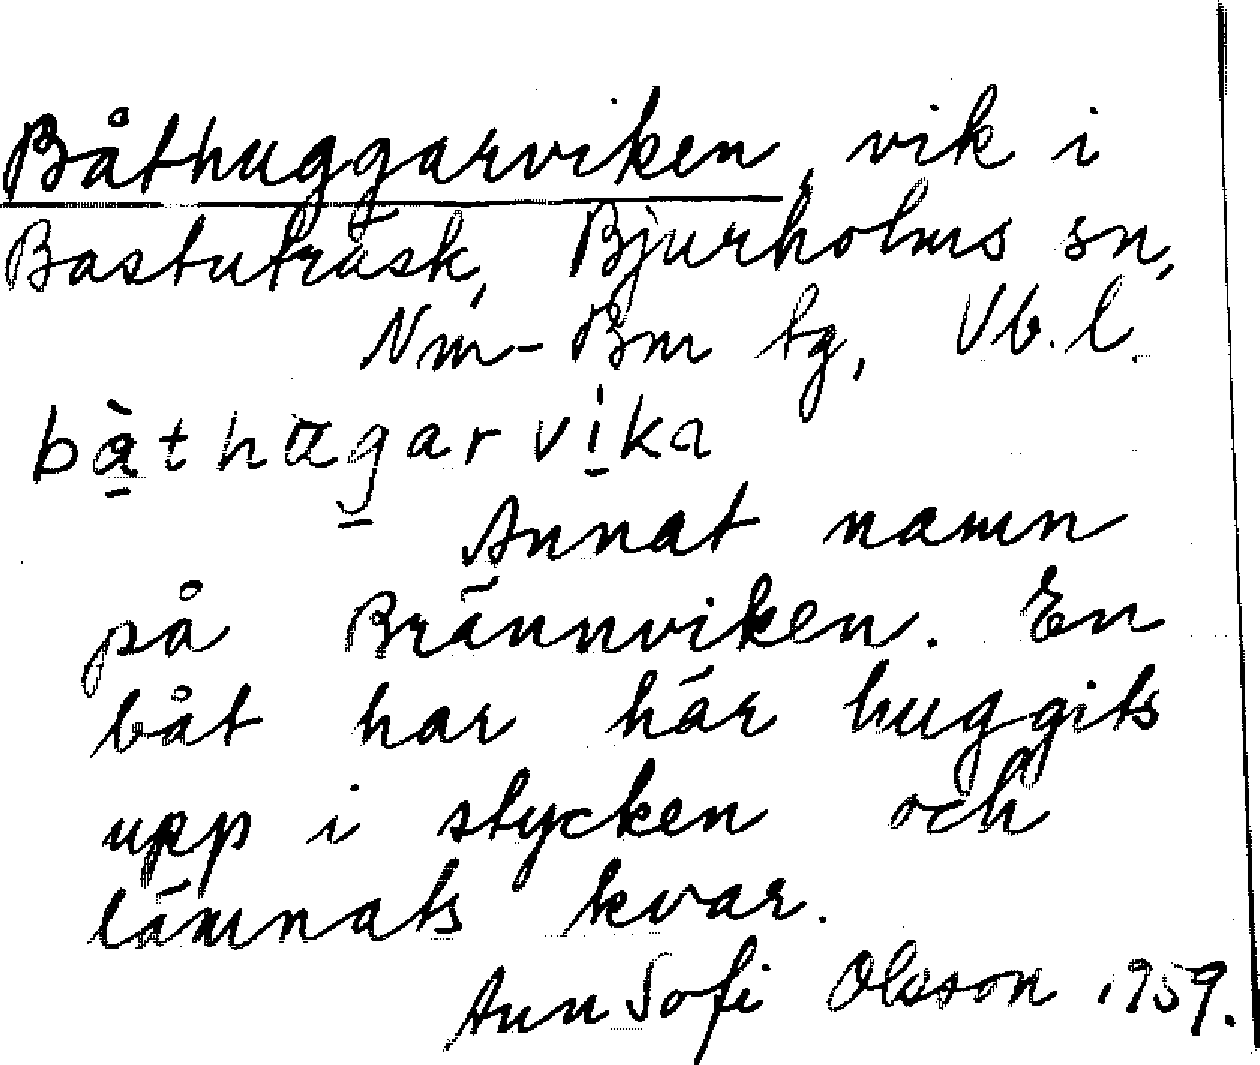 Båthuggarviken, vik i
Bastuträsk, Bjurholms sn,
Nm-Bm tg, Vb. l.
Annat namn
på Brännviken. En
båt har här huggits
upp i stycken och
lämnats kvar.
Ann Sofi Olsson 1959.